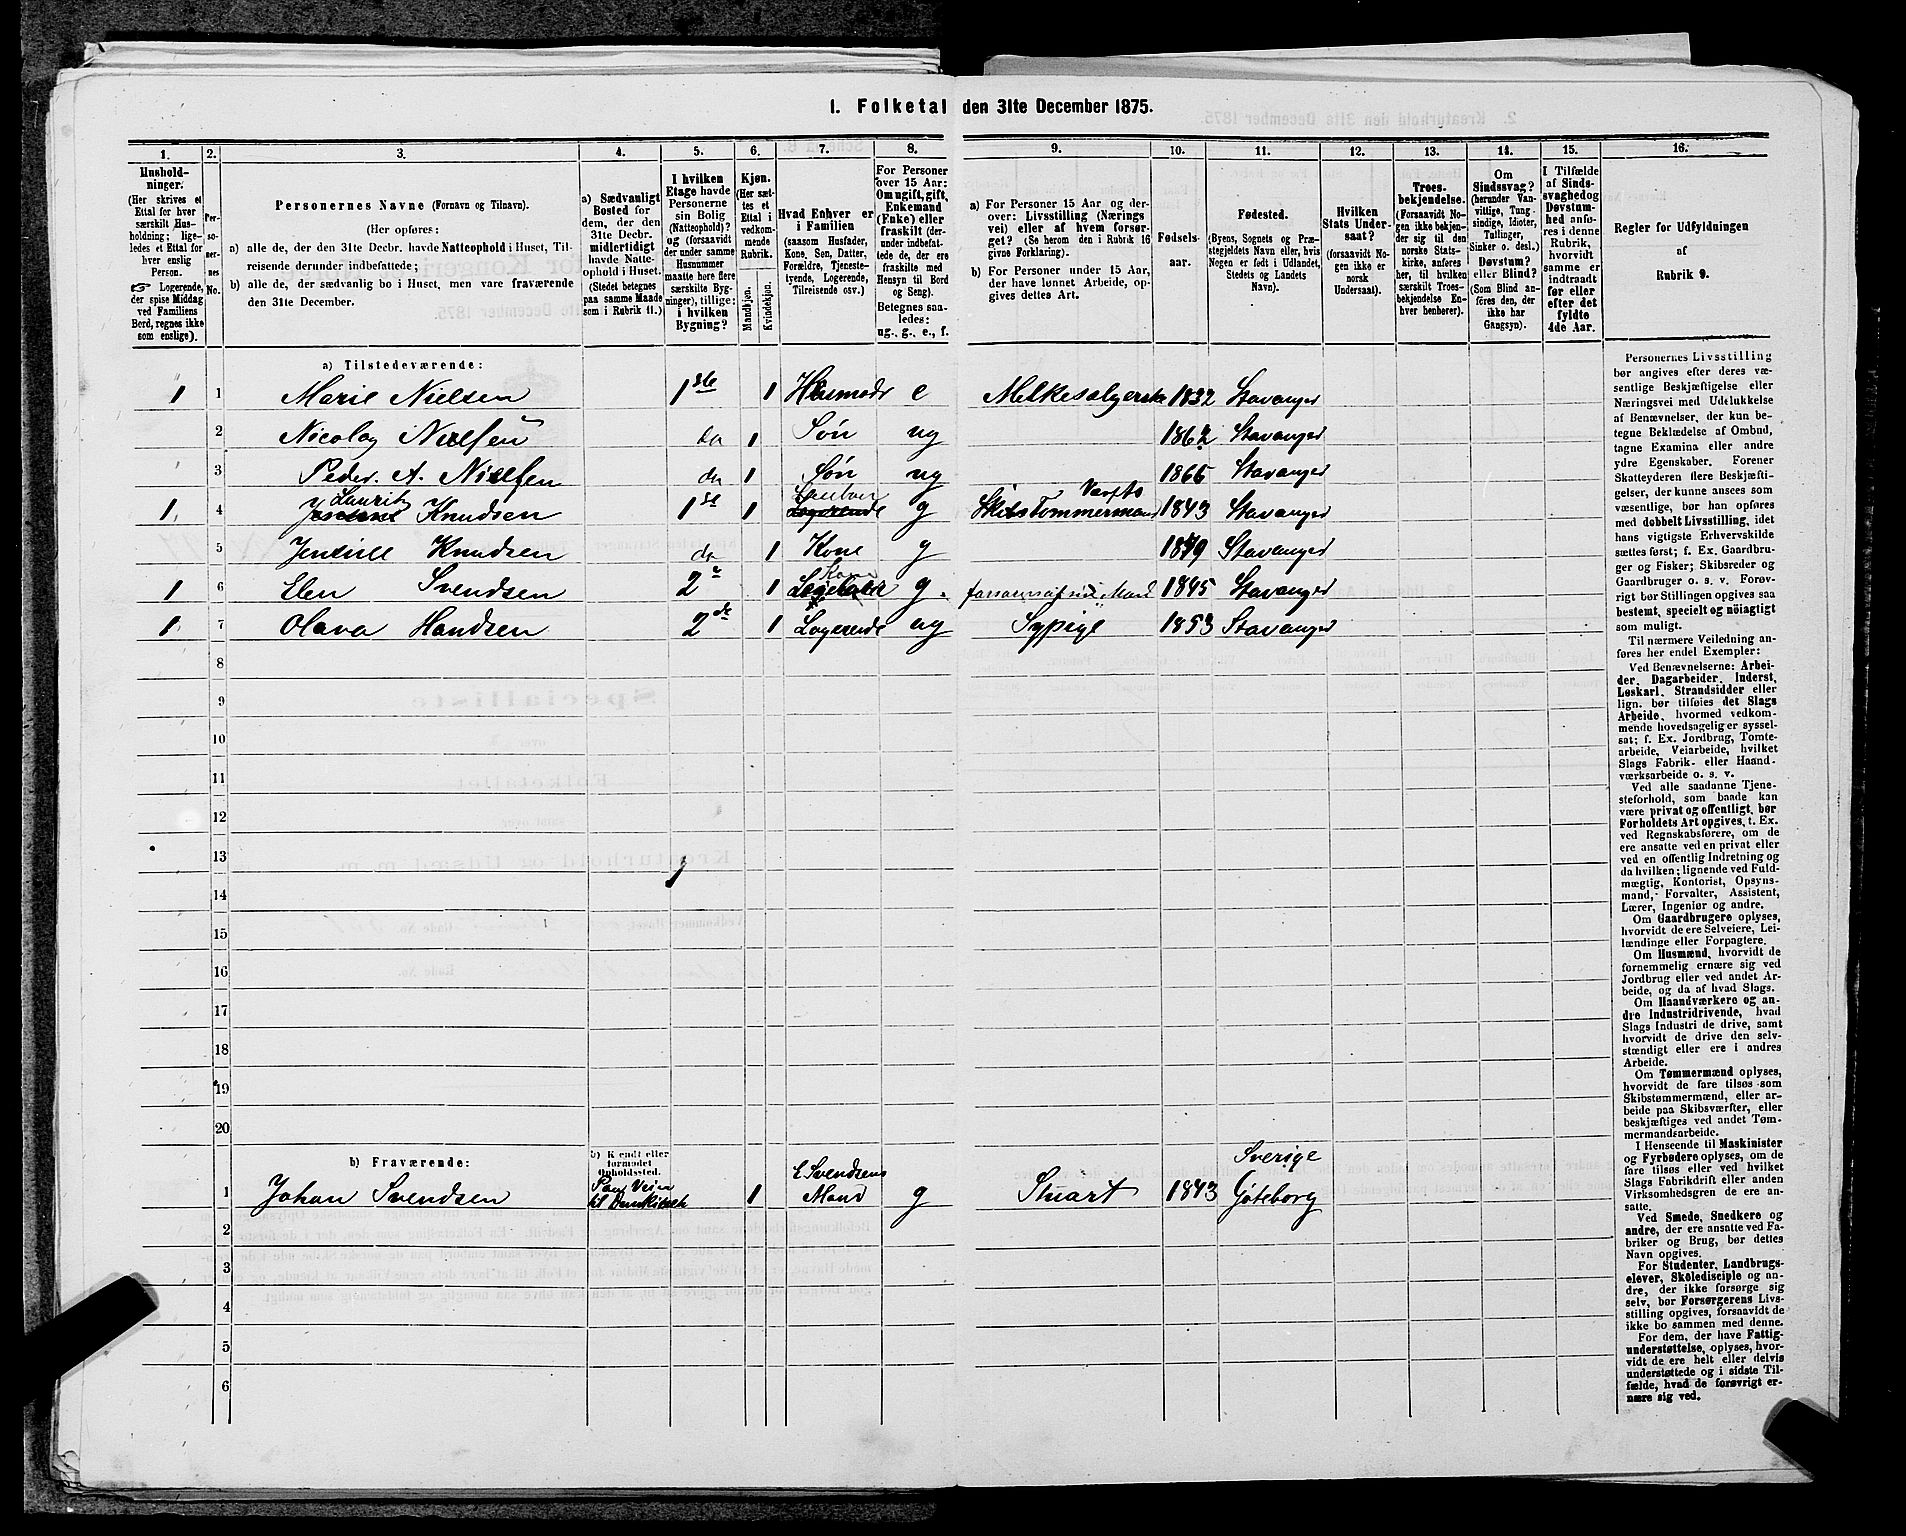 1. Folketal den 31te December 1875.
1. 2. 3. 4. 5. 6. 7. 8. 9. 10. 11. 12. 13. 14. 15. 16.
Husholdninger.
(Her skrives et
Ettal for hver
særskilt Husholdning;
ligeledes et Ettal for
hver enslig
Person.
☞ Logerende,
der spise Middag
ved Familiens
Bord, regnes ikke
som enslige).
Personernes No.
Personernes Navne (Fornavn og Tilnavn).
(Her opføres:
a) alle de, der den 31te Decbr. havde Natteophold i Huset, Tilreisende derunder indbefattede;
b) alle de, der sædvanlig bo i Huset, men vare fraværende
den 31te December.
a) Sædvanligt
Bosted for
dem, der den
31te Decbr.
midlertidigt
havde Natteophold i Huset.
(Stedet betegnes
paa samme Maade
som i Rubrik 11.)
I hvilken
Etage havde
Personerne
sin Bolig
(Natteophold)?
og (forsaavidt
der under samme
Husnummer
maatte høre flere
særskilte Bygninger), tillige:
i hvilken
Bygning?
Kjøn.
(Her sættes et
Ettal i
vedkommende
Rubrik.
Mandkjøn.
Kvindekjøn.
Hvad Enhver er
i Familien
(saasom Husfader,
Kone, Søn, Datter,
Forældre, Tjenestetyende, Logerende,
Tilreisende osv.)
For Personer
over 15 Aar:
Om ugift, gift,
Enkemand
(Enke) eller
fraskilt (derunder indbefattede de, der ere
fraskilte med
Hensyn til Bord
og Seng).
Betegnes saaledes:
ug., g., e., f.
a) For Personer 15 Aar og derover: Livsstilling (Næringsvei) eller af hvem forsørget? (Se herom den i Rubrik 16
givne Forklaring).
b) For Personer under 15 Aar,
der have lønnet Arbeide, opgives dettes Art.
Fødselsaar.
Fødested.
(Byens, Sognets og Præstegjeldets Navn eller, hvis
Nogen er født i Udlandet,
Stedets og Landets
Navn).
Hvilken
Stats Undersaat?
(forsaavidt Nogen ikke er
norsk
Undersaat).
Troesbekjendelse.
(Forsaavidt Nogen ikke bekjender sig til den
norske Statskirke, anføres
her, til hvilken
særskilt Troesbekjendelse Enhver henhører).
Om
Sindssvag?
(herunder Vanvittige, Tungsindige, Idioter,
Tullinger,
Sinker o. desl.)
Døvstum?
eller Blind?
(Som Blind anføres den, der
ikke har
Gangsyn).
I Tilfælde
af Sindssvaghed og
Døvstumhed anføres i denne
Rubrik,
hvorvidt
samme er
indtraadt
før eller
efter det
fyldte
4de Aar.
Regler for Udfyldningen
af
Rubrik 9.
a) Tilstedeværende:
1 1 Marie Nielsen 1ste 1 Husmoder e Melkesælgerske 1832 Stavanger
2 Nicolay Nielsen do 1 Søn ug 1862 Stavanger
3 Peder. A. Nielsen do 1 Søn ug 1866 Stavanger
1 4 Laurits Knudsen 1ste 1 Logerende g Skibstømmermand Værfts 1843 Stavanger
5 Knudsen do 1 Kone g 1849 Stavanger
1 6 Elen Svendsen 2 1 Kone g. forsørges af sin Mand 1845 Stavanger
1 7 Olava Hansen 2de 1 Logerende ug Sypige 1853 Stavanger
8
9
10
11
12
13
14
15
16
17
18
19
20
b) Fraværende:
b) Kjendt eller
formodet
Opholdssted.
1 Johan Svendsen Paa Veien til 1 E Svendsens Mand g Stuart 1843 Sverige Göteborg
2
3
4
5
6
Personernes Livsstilling
bør angives efter deres væsentlige Beskjæftigelse eller
Næringsvei med Udelukkelse
af Benævnelser, der kun betegne Beklædelse af Ombud,
tagne Examina eller andre
ydre Egenskaber. Forener
Skatteyderen flere Beskjæftigelser, der kunne ansees som
væsentlige, bør han opføres
med dobbelt Livsstilling, idet
hans vigtigste Erhvervskilde
sættes først; f. Ex. Gaardbruger og Fisker; Skibsreder og
Gaardbruger o. s. v. Forøvrigt bør Stillingen opgives saa
bestemt, specielt og nøiagtigt
som muligt.
Til nærmere Veiledning anføres her endel Exempler:
Ved Benævnelserne: Arbeider, Dagarbeider, Inderst,
Løskarl, Strandsidder eller
lign. bør tilføies det Slags
Arbeide, hvormed vedkommende hovedsagelig er sysselsat; f. Ex. Jordbrug, Tomtearbeide, Veiarbeide, hvilket
Slags Fabrik- eller Haandværksarbeide o. s. v.
Ved alle saadanne Tjenesteforhold, som baade kan
være privat og offentligt, bør
Forholdets Art opgives, t. Ex.
ved Regnskabsførere, om de
ere ansatte ved en privat eller
ved en offentlig Indretning og
da hvilken; lignende ved Fuldmægtig, Kontorist, Opsynsmand, Forvalter, Assistent,
Lærer, Ingeniør og andre.
Om Gaardbrugere oplyses,
hvorvidt de ere Selveiere, Leilændinge eller Forpagtere.
Om Husmænd, hvorvidt de
fornemmelig ernære sig ved
Jordbrug eller ved andet Arbeide, og da af hvad Slags.
Om Haandværkere og andre Industridrivende, hvad
Slags Industri de drive, samt
hvorvidt de drive den selvstændigt eller ere i andres
Arbeide.
Om Tømmermænd oplyses,
hvorvidt de fare tilsøs som
Skibstømmermænd, eller arbeide paa Skibsværfter, eller
beskjæftiges ved andet Tømmermandsarbeide.
I Henseende til Maskinister
og Fyrbødere oplyses, om de
fare tilsøs eller ved hvilket
Slags Fabrikdrift eller anden
Virksomhedsgren de ere ansatte.
Ved Smede, Snedkere og
andre, der ere ansatte ved Fabriker og Brug, bør dettes
Navn opgives.
For Studenter, Landbrugselever, Skoledisciple og andre, der ikke forsørge sig
selv, bør Forsørgerens Livsstilling opgives, forsaavidt de
ikke bo sammen med denne.
For dem, der have Fattigunderstøttelse, oplyses, hvorvidt de ere helt eller delvis
understøttede og i sidste Tilfælde, hvad de forøvrigt ernære sig ved.